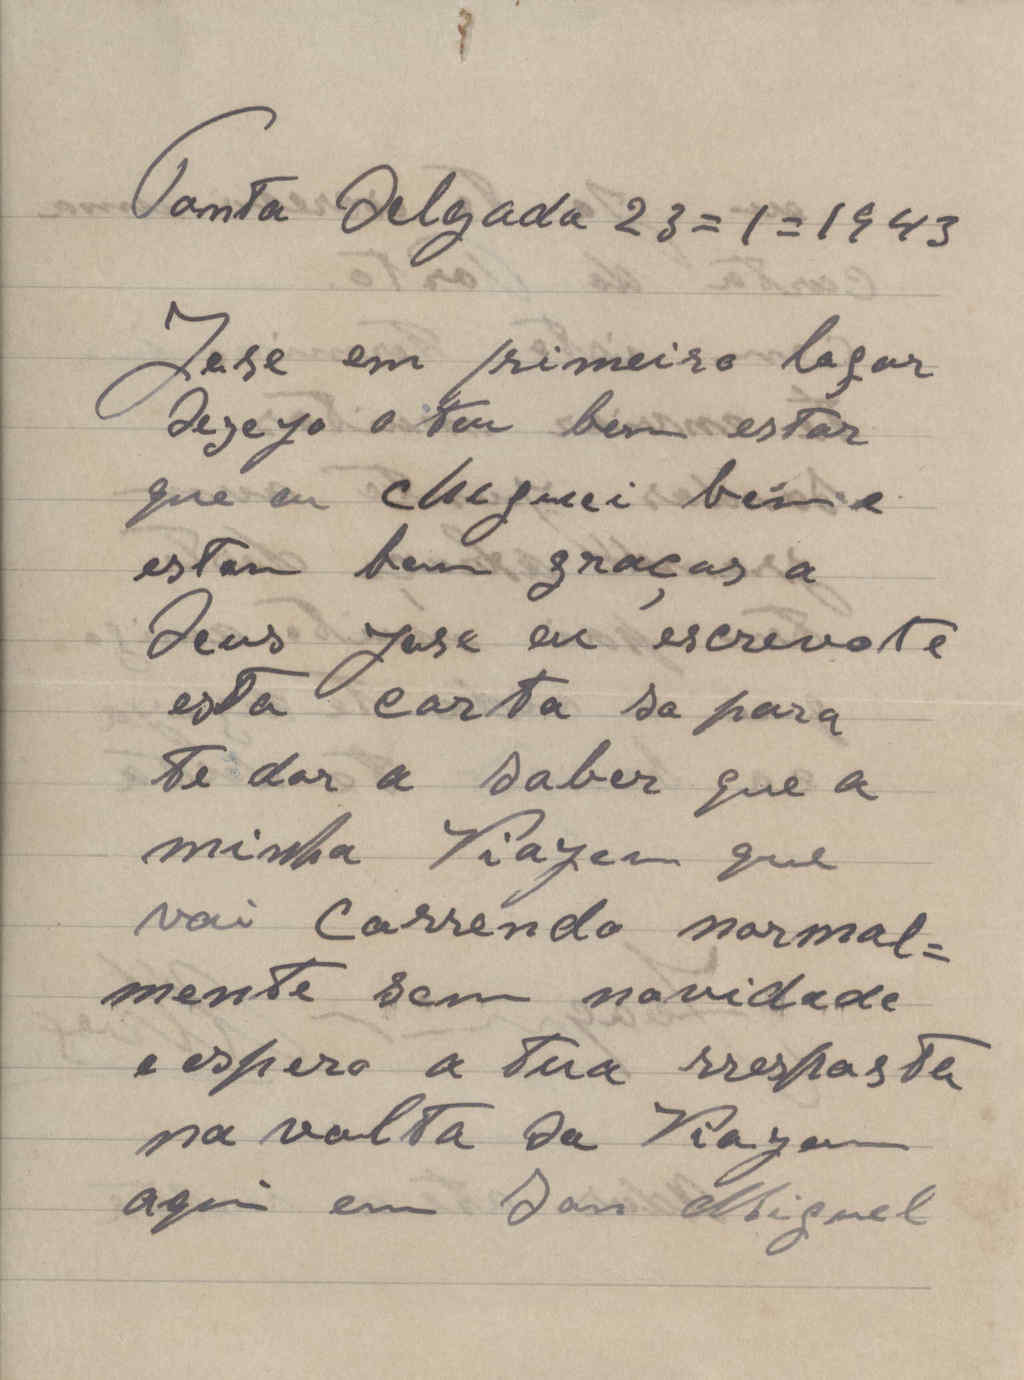 Ponta Delgada 23=1=1943
Jose em primeiro logar
dezeyo o teu bem estar
que eu cheguei bem e
estou bem graças a
Deus Jose eu escrevote
esta carta so para
te dar a saber que a
minha Viagem que
vai correndo normal=
mente sem novidade
e espero a tua rresposta
na volta da Viagem
aqui em San Miguel